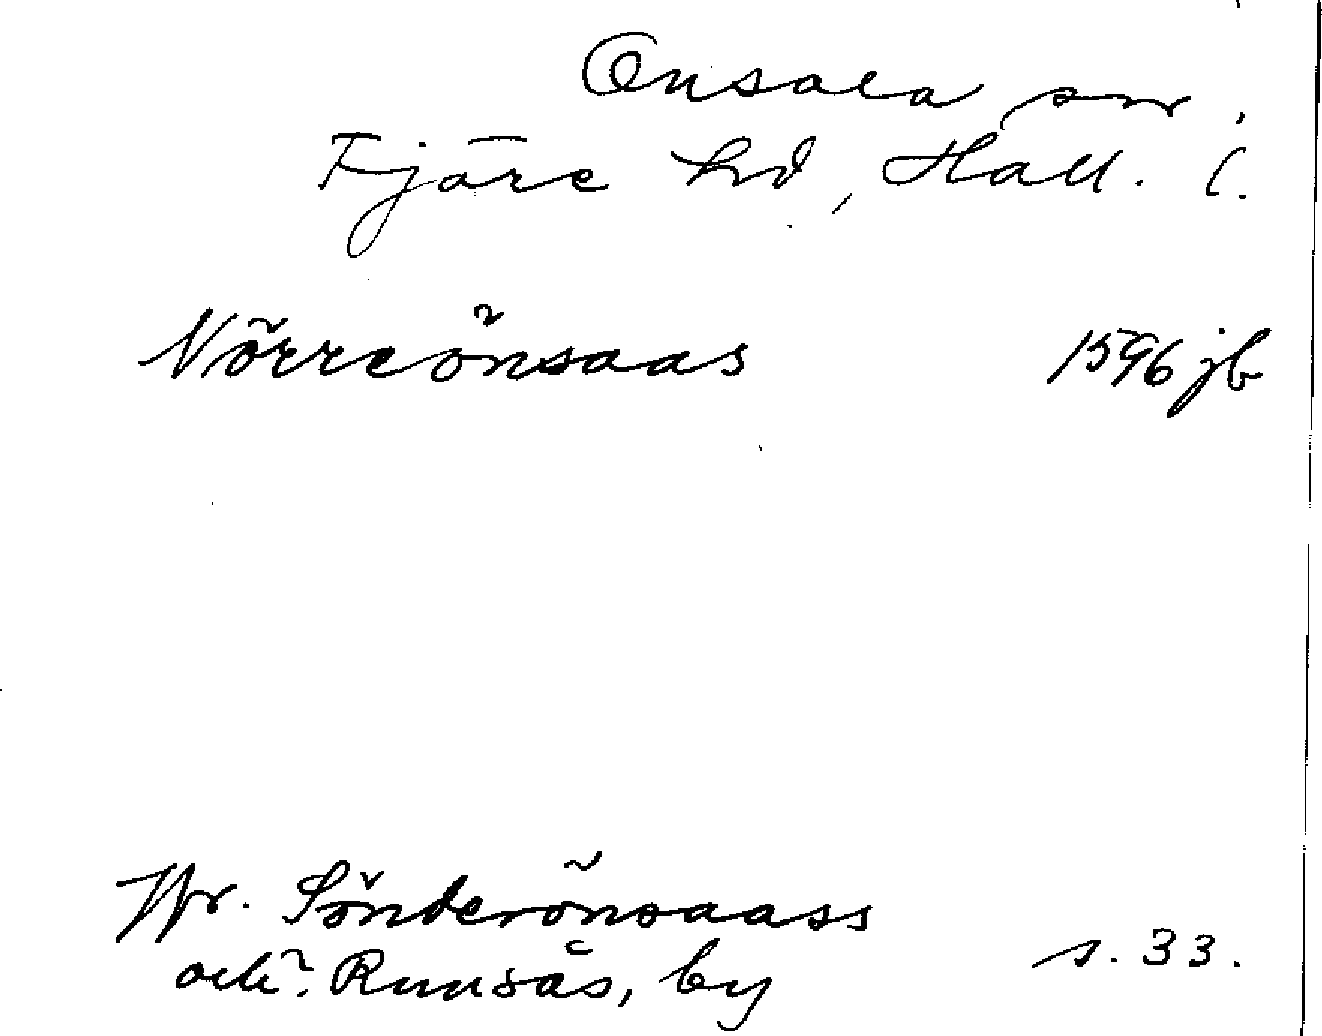 Onsala sn,
Fjäre hd, Hall. l.
Nörreönsaas 1596 jb
Jfr. Sönderönsaass
och Runsås, by s. 33.